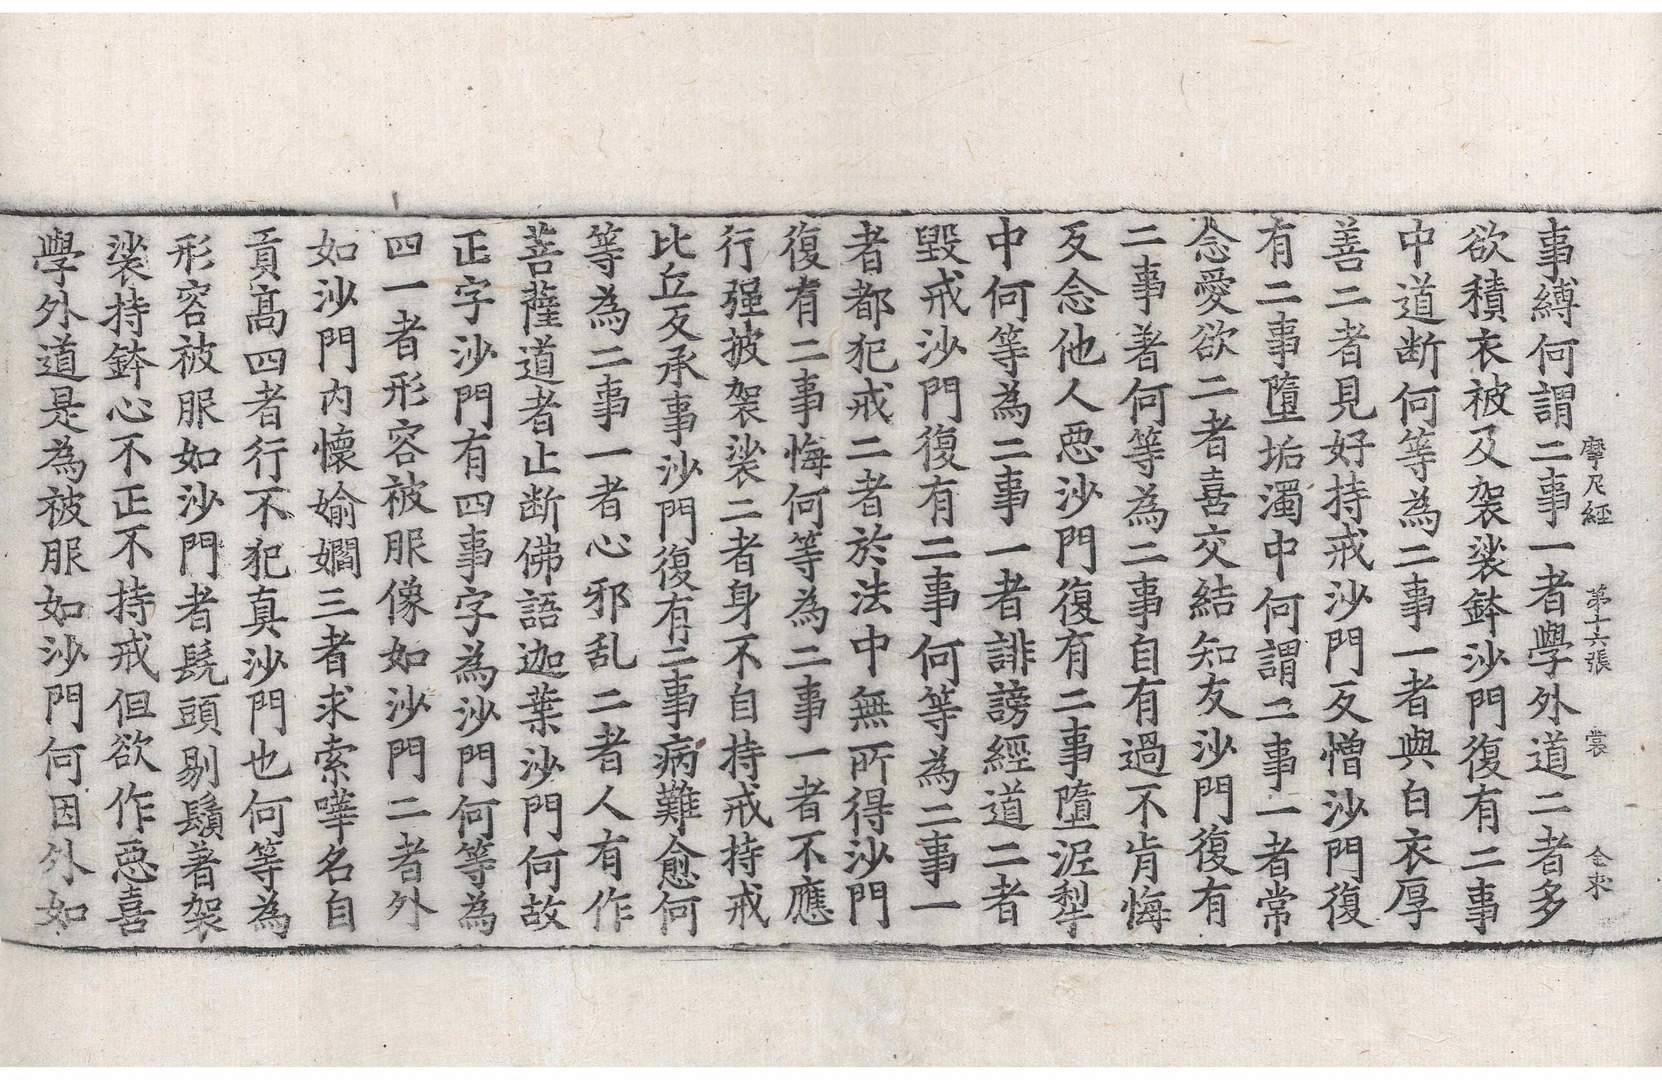 摩尼經　第十六張　裳
事縛何謂二事一者學外道二者多
欲積衣被及袈裟鉢沙門復有二事
中道断何等為二事一者與白衣厚
善二者見好持戒沙門反憎沙門復
有二事墮垢濁中何謂二事一者常
念愛欲二者喜交結知友沙門復有
二事著何等為二事自有過不肯悔
反念他人惡沙門復有二事墮泥犁
中何等為二事一者誹謗經道二者
毀戒沙門復有二事何等為二事一
者都犯戒二者於法中無所得沙門
復有二事悔何等為二事一者不應
行强披袈裟二者身不自持戒持戒
比丘反承事沙門復有二事病難愈何
等為二事一者心邪乱二者人有作
菩薩道者止断佛語迦葉沙門何故
正字沙門有四事字為沙門何等為
四一者形容被服像如沙門二者外
如沙門内懷婾嫺三者求索嘩名自
貢高四者行不犯真沙門也何等為
形容被服如沙門者髡頭剔鬚著袈
裟持鉢心不正不持戒但欲作惡喜
學外道是為被服如沙門何因外如